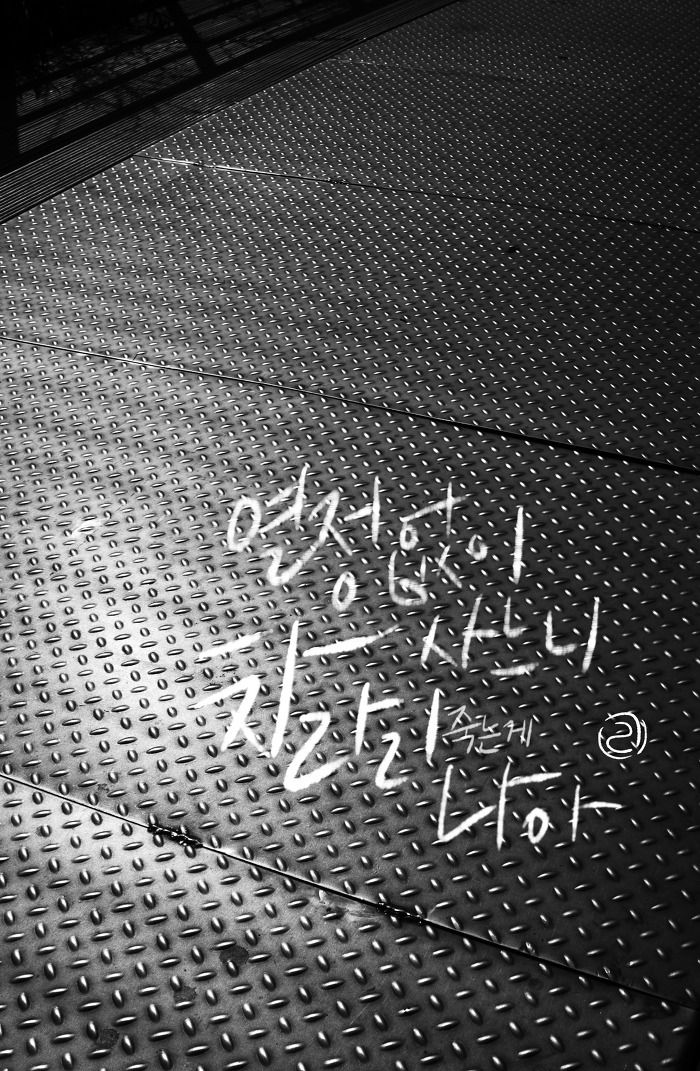 열정 없이
사느니
차라리 죽는게
나아
리